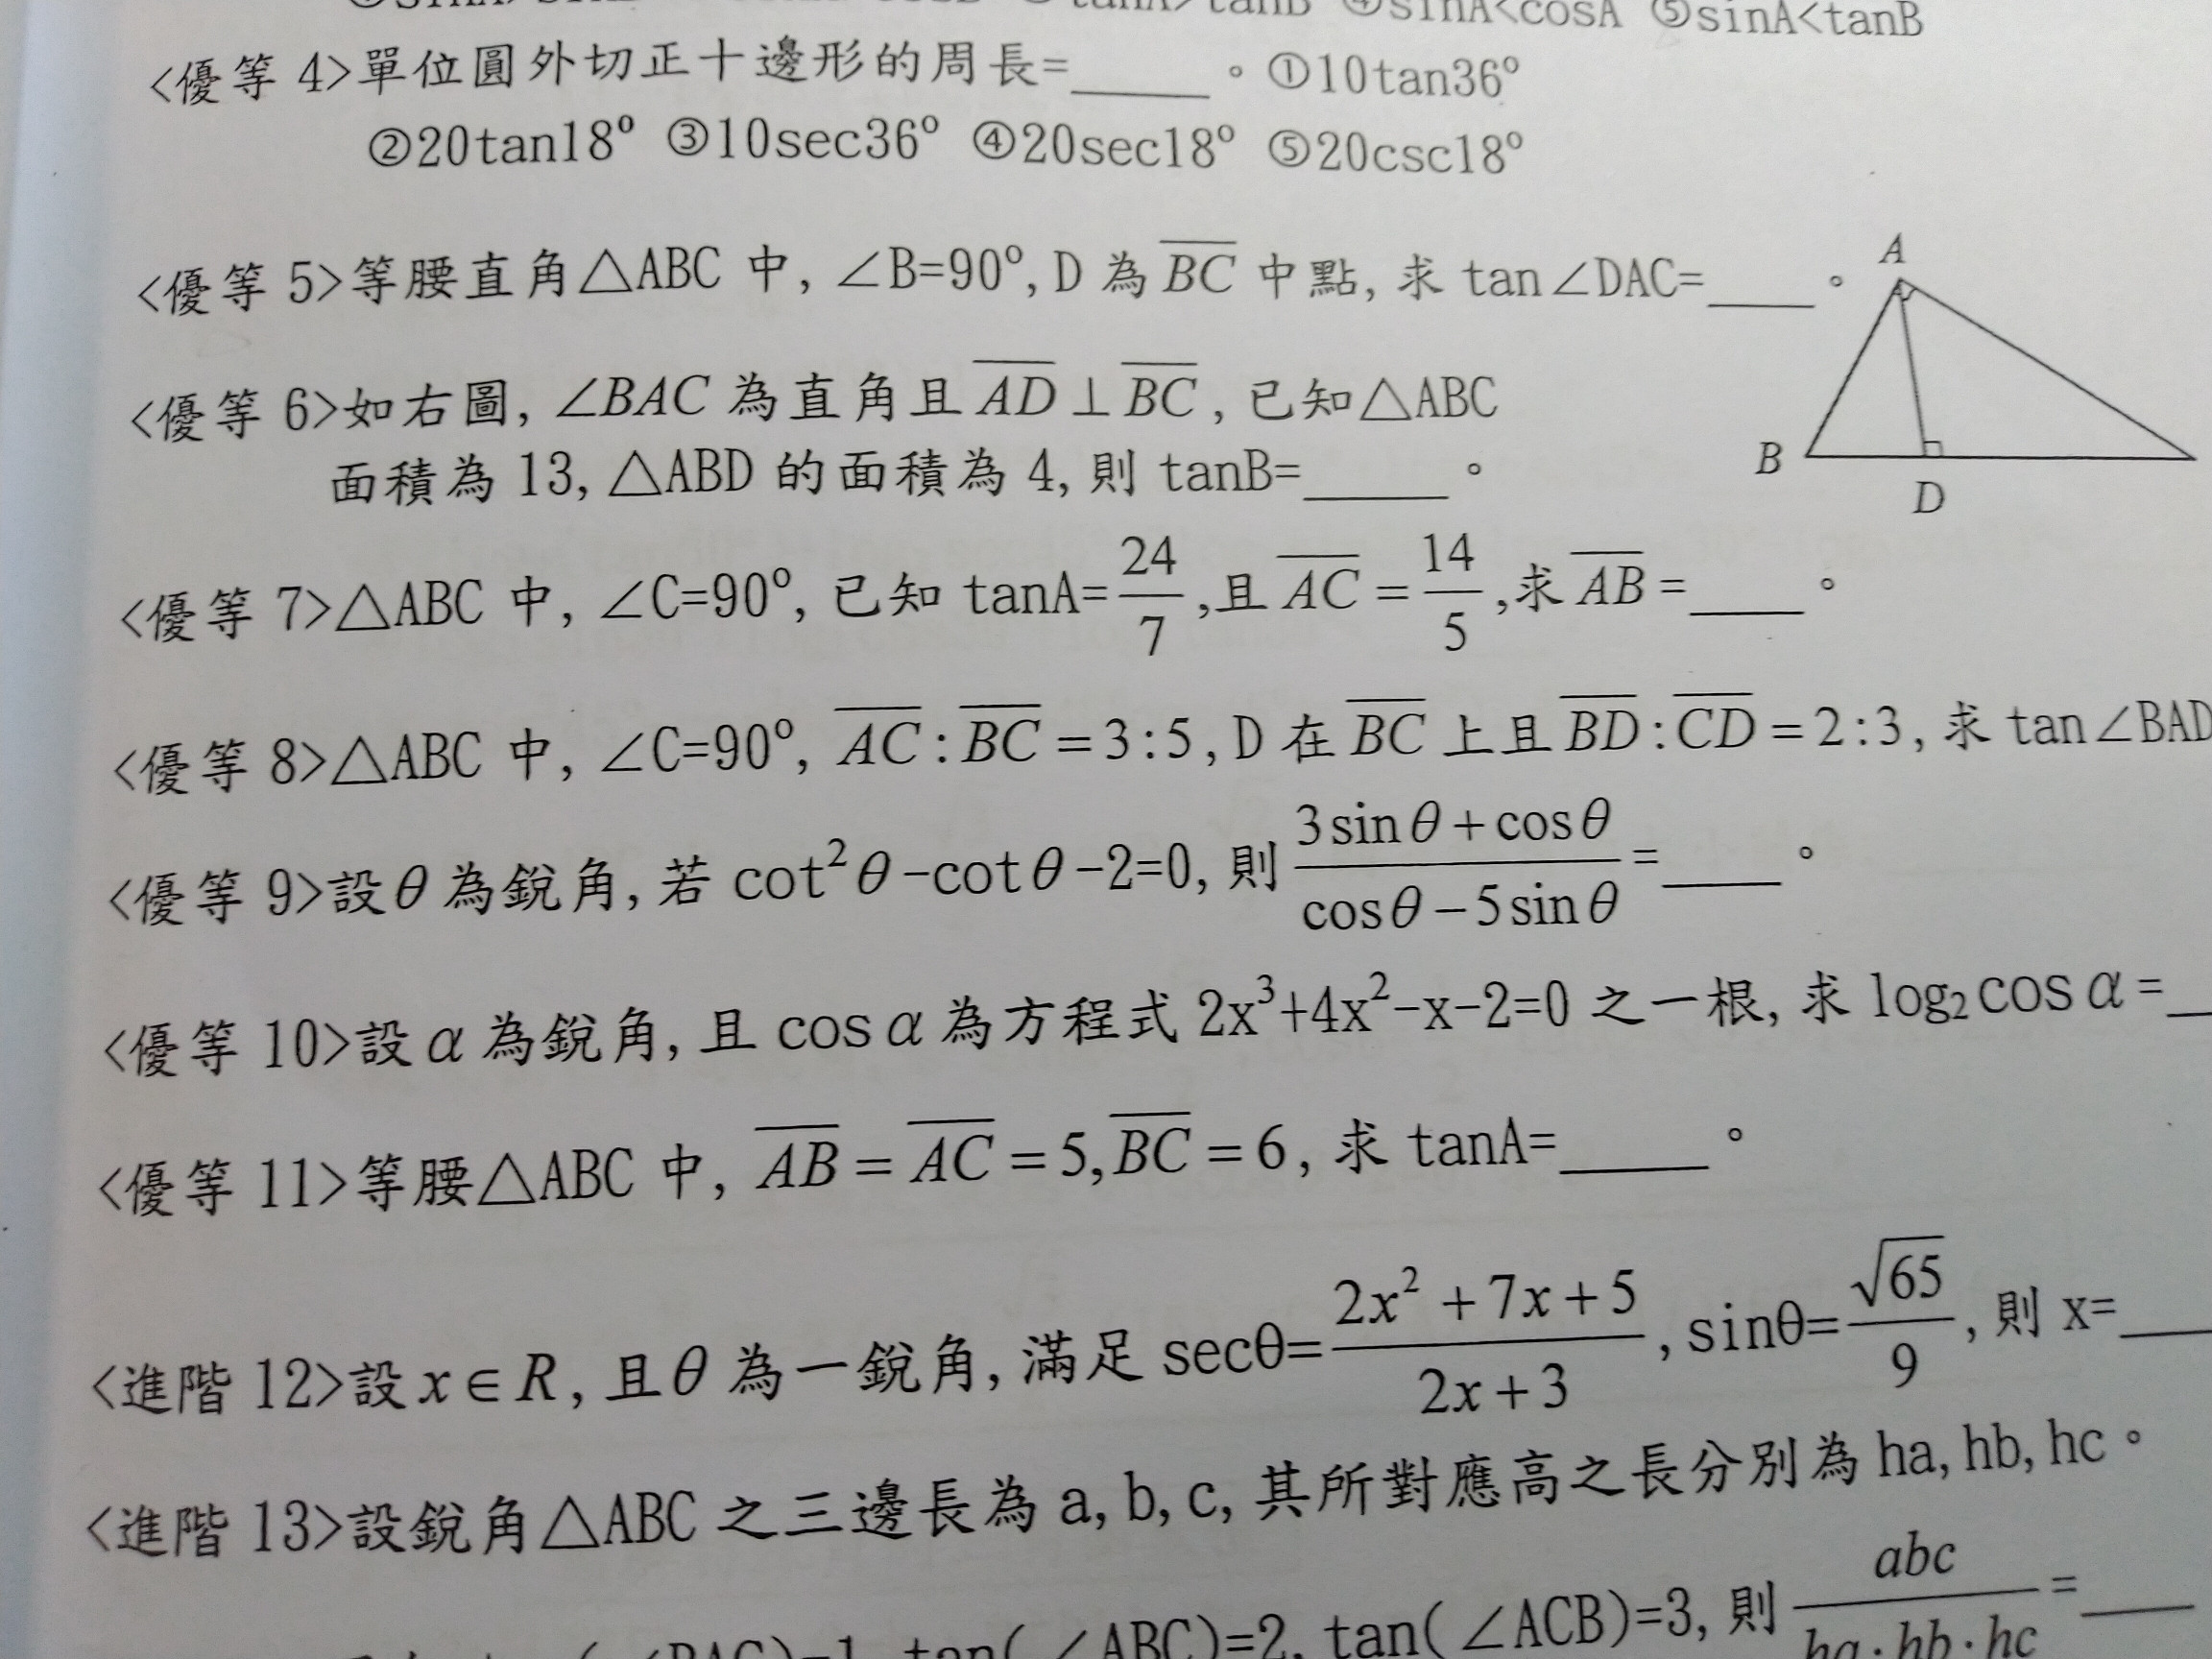 ④sinA<cosA ⑤sinA<tanB
<優等 4>單位圓外切正十邊形的周長=_____。①10tan36°
②20tan18° ③10sec36° ④20sec18° ⑤20csc18°
<優等 5>等腰直角△ABC 中, ∠B=90°, D 為 \overline{BC} 中點, 求 tan∠DAC=____。
A
<優等 6>如右圖, ∠BAC 為直角且 \overline{AD}⊥\overline{BC}, 已知△ABC
面積為 13, △ABD 的面積為 4, 則 tanB=_____。
B
D
<優等 7>△ABC 中, ∠C=90°, 已知 tanA=24/7, 且 \overline{AC}=14/5, 求 \overline{AB}=____。
<優等 8>△ABC 中, ∠C=90°, \overline{AC}:\overline{BC}=3:5, D 在 \overline{BC} 上且 \overline{BD}:\overline{CD}=2:3, 求 tan∠BAD
<優等 9>設θ為銳角, 若 cot²θ-cotθ-2=0, 則 (3sinθ+cosθ)/(cosθ-5sinθ)=____。
<優等 10>設α為銳角, 且 cosα為方程式 2x³+4x²-x-2=0 之一根, 求 log₂cosα=_
<優等 11>等腰△ABC 中, \overline{AB}=\overline{AC}=5, \overline{BC}=6, 求 tanA=_____。
<進階 12>設 x∈R, 且θ為一銳角, 滿足 secθ=(2x²+7x+5)/(2x+3), sinθ=√65/9, 則 x=___
<進階 13>設銳角△ABC 之三邊長為 a, b, c, 其所對應高之長分別為 ha, hb, hc。
(∠BAC)=1, tan(∠ABC)=2, tan(∠ACB)=3, 則 abc/(ha·hb·hc)=____